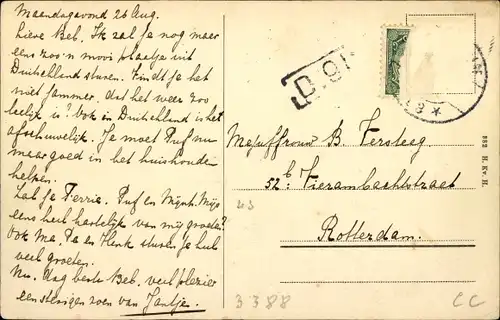 Maandagavond 26 Aug.
Lieve Bel. Ik zal je nog maar
eens zoo'n mooi plaatje uit
Duitschland sturen. Vindt je het
niet jammer, dat het weer zoo
leelijk is? Ook in Duitschland is het
afschuwelijk. Je moet Puf nu
maar goed in het huishouden
helpen.
Zal je Ferrie, Puf en
eens heel hartelijk van mij groeten?
Ook Ma, Pa en Henk sturen je heel
veel groeten.
Nu, dag beste Bel, veel plezier
een stevigen zoen van Jantje.
D. 91
Mejuffrouw B. Versteeg.
52 b: Vierambachtstraat
Rotterdam.
882 H. Kv. H.
43
3388
CC